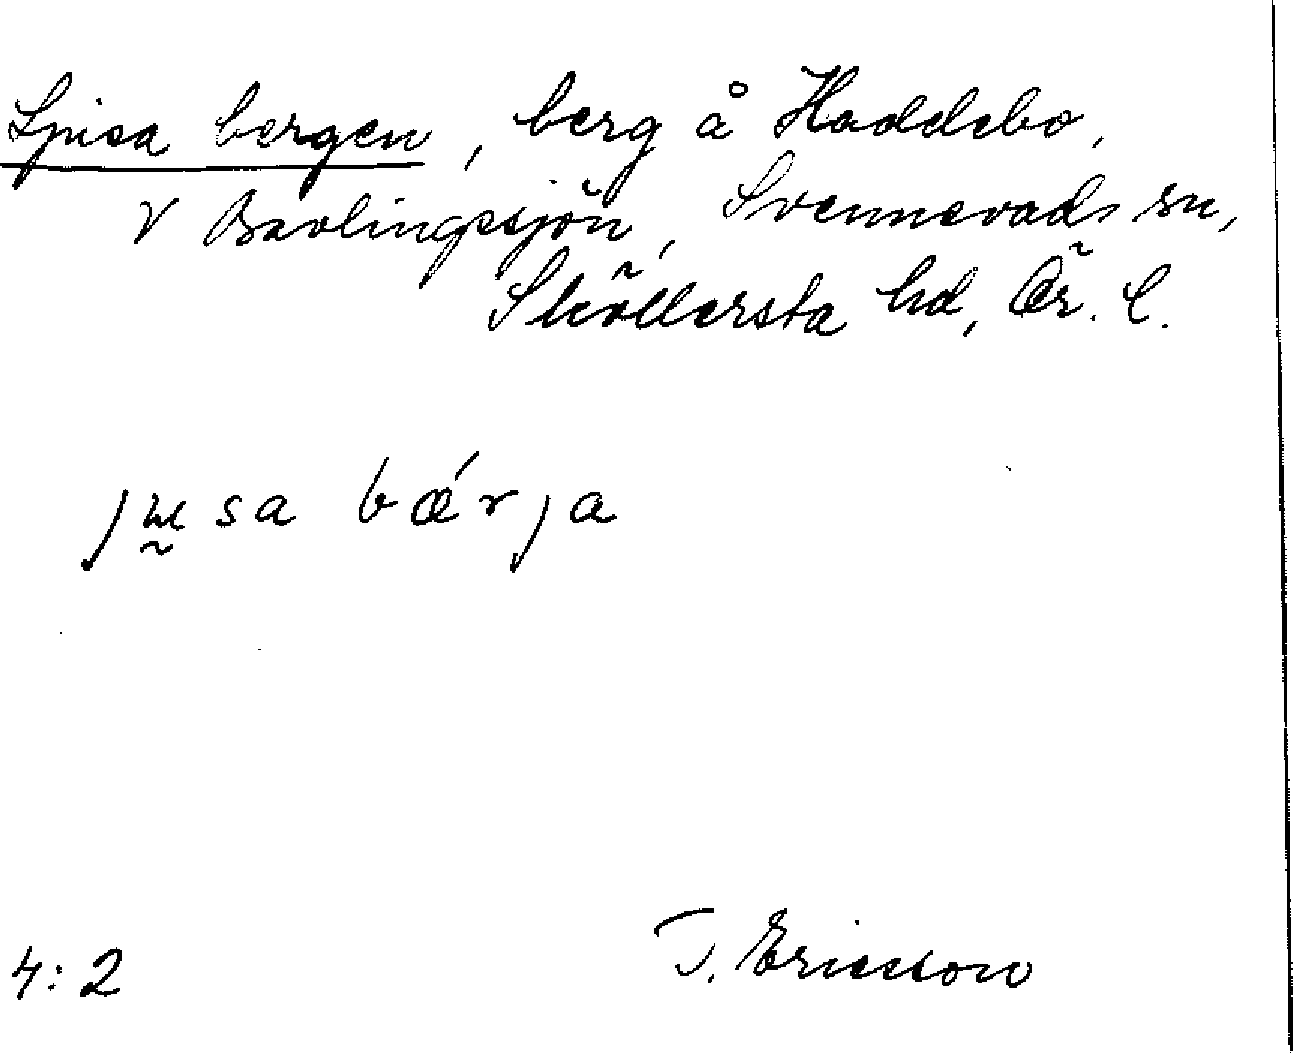 Ljusa bergen, berg å Haddebo,
V Bavlingssjön, Svennevads sn,
Sköllersta hd, Ör. l.
bǽrja
4:2 T. Ericsson